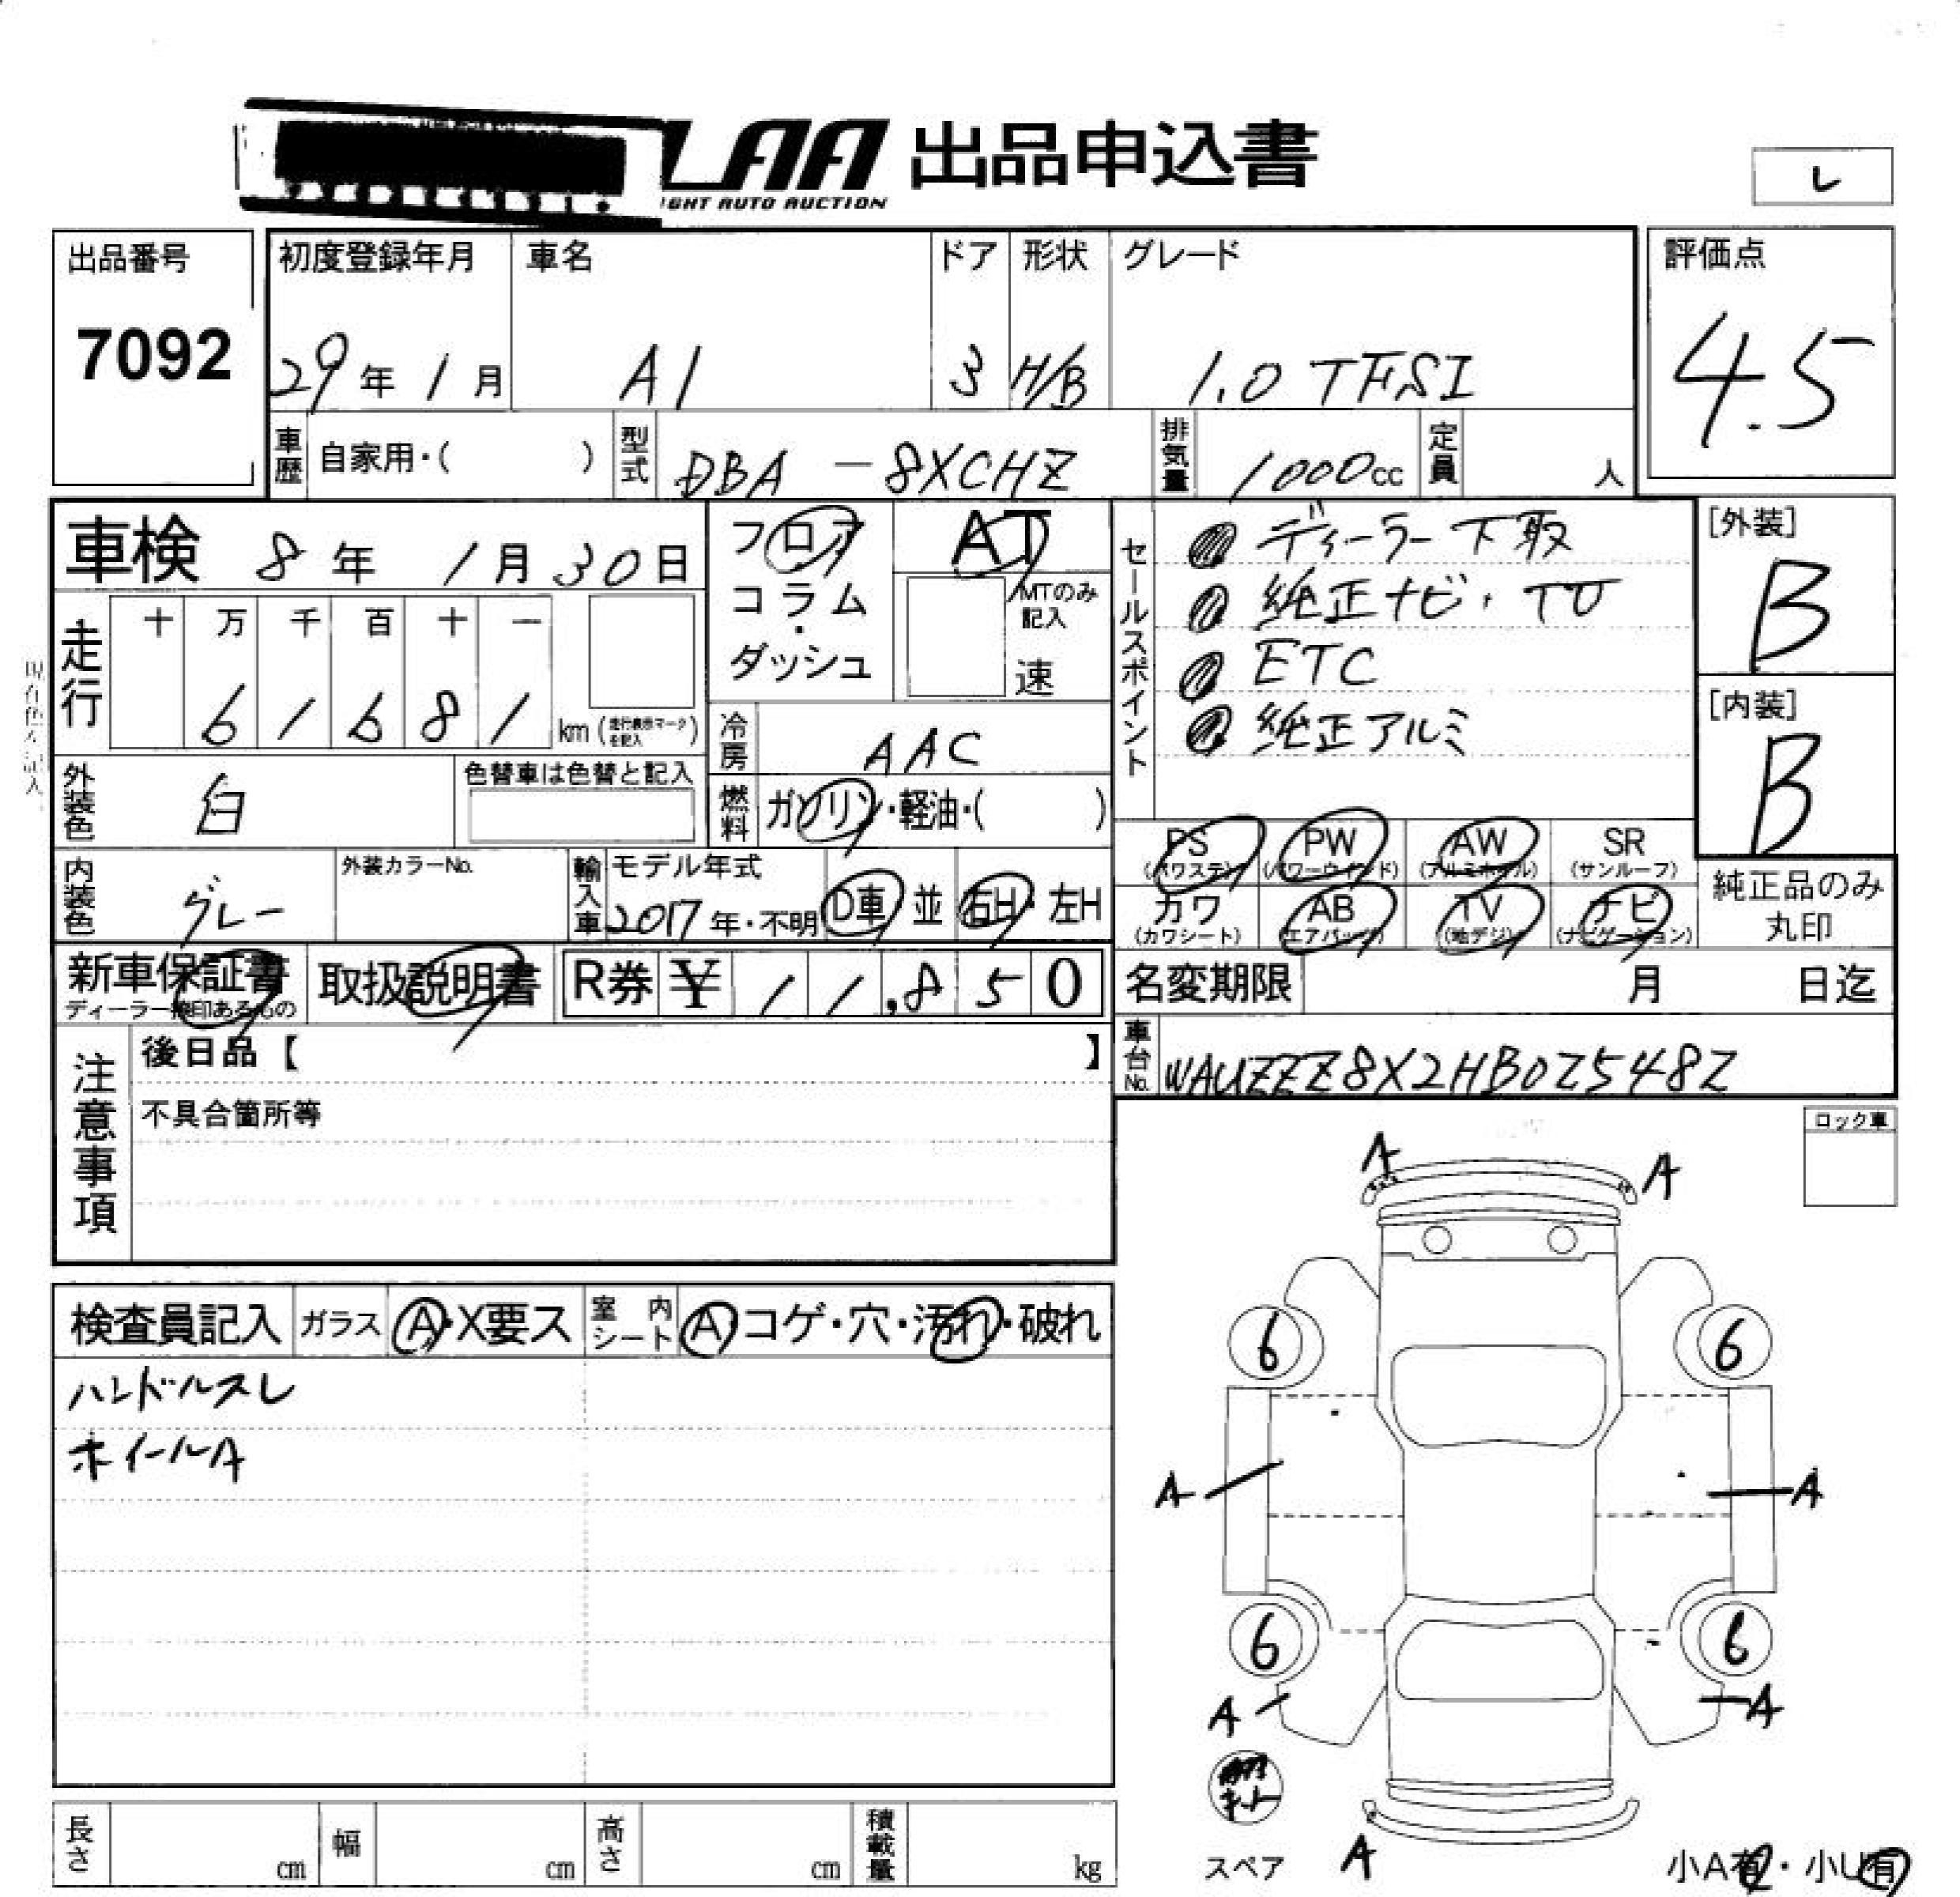 LAA 出品申込書
IGHT AUTO AUCTION
レ
出品番号
7092
初度登録年月
29年 1月
車名
A1
ドア
3
形状
H/B
グレード
1.0 TFSI
評価点
4.5
車歴 自家用・( )
型式 DBA - 8XCHZ
排気量 1000cc
定員 人
車検 8年 1月30日
フロア
コラム
・
ダッシュ
AT
MTのみ
記入
速
走行
十 万 千 百 十 一
6 1 6 8 1 km (走行表示マークを記入)
冷房 AAC
外装色 白
色替車は色替と記入
燃料 ガソリン・軽油・( )
内装色 グレー
外装カラーNo.
輸入車 モデル年式
2017年・不明
D車 並
右H・左H
セールスポイント
ディーラー下取
純正ナビ・TV
ETC
純正アルミ
[外装]
B
[内装]
B
PS (パワステ)
PW (パワーウインド)
AW (アルミホイル)
SR (サンルーフ)
カワ (カワシート)
AB (エアバッグ)
TV (地デジ)
ナビ (ナビゲーション)
純正品のみ
丸印
新車保証書
ディーラー捺印あるもの
取扱説明書
R券 ¥ 11,850
名変期限 月 日迄
車台No. WAUZZZ8X2HB0Z548Z
注意事項
後日品【 】
不具合箇所等
ロック車
検査員記入
ガラス A・X要ス
室内シート A・コゲ・穴・汚れ・破れ
ハンドルスレ
ホイールA
A A
6 6
A A
6 6
A A
スペア
A
小A有・小U有
長さ cm
幅 cm
高さ cm
積載量 kg